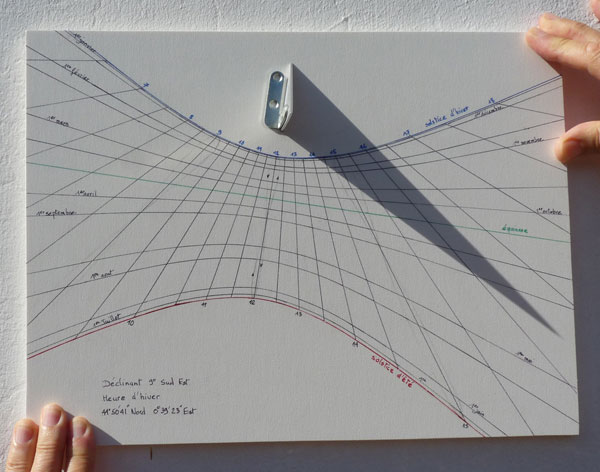 1er janvier
1er février
7
8
9
10 11 12 13 14 15 16
solstice d'hiver
1er décembre
1er mars
1er novembre
1er avril
1er septembre
1er octobre
équinoxe
1er août
1er juillet
10
11
12
13
14
15
1er mai
solstice d'été
1er juin
Déclinant 9° Sud Est
Heure d'hiver
44°50'41" Nord 0°39'23" Est